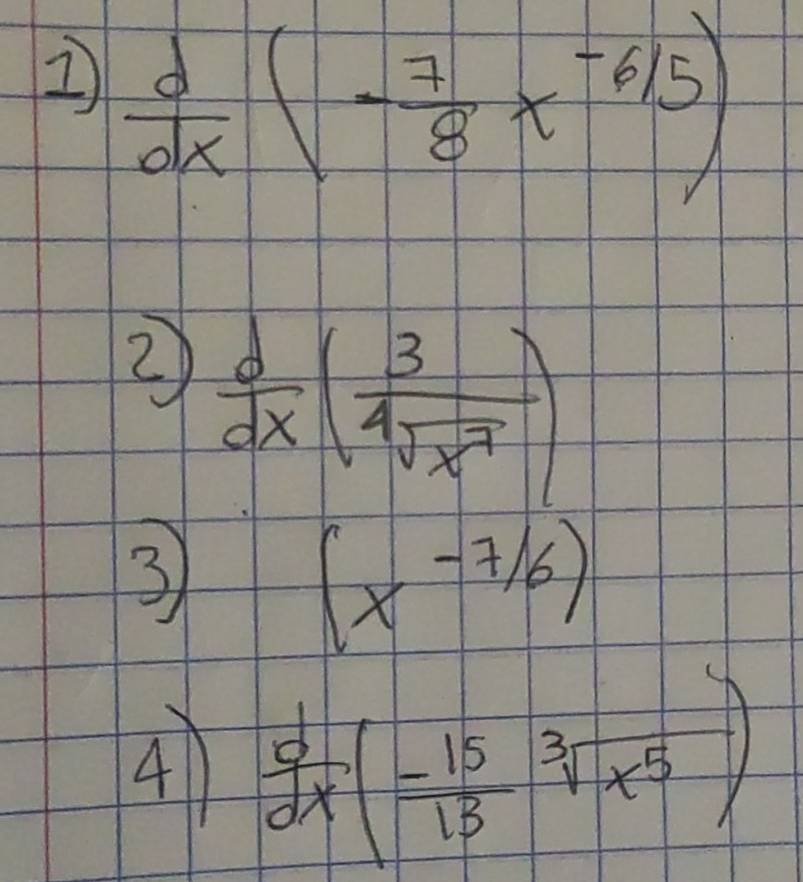 1) d/dx ( - 7/8 x^-6/5 )
2) d/dx ( 3/⁴√x⁷ )
3) ( x^-7/6 )
4) d/dx ( -15/13 ³√x⁵ )